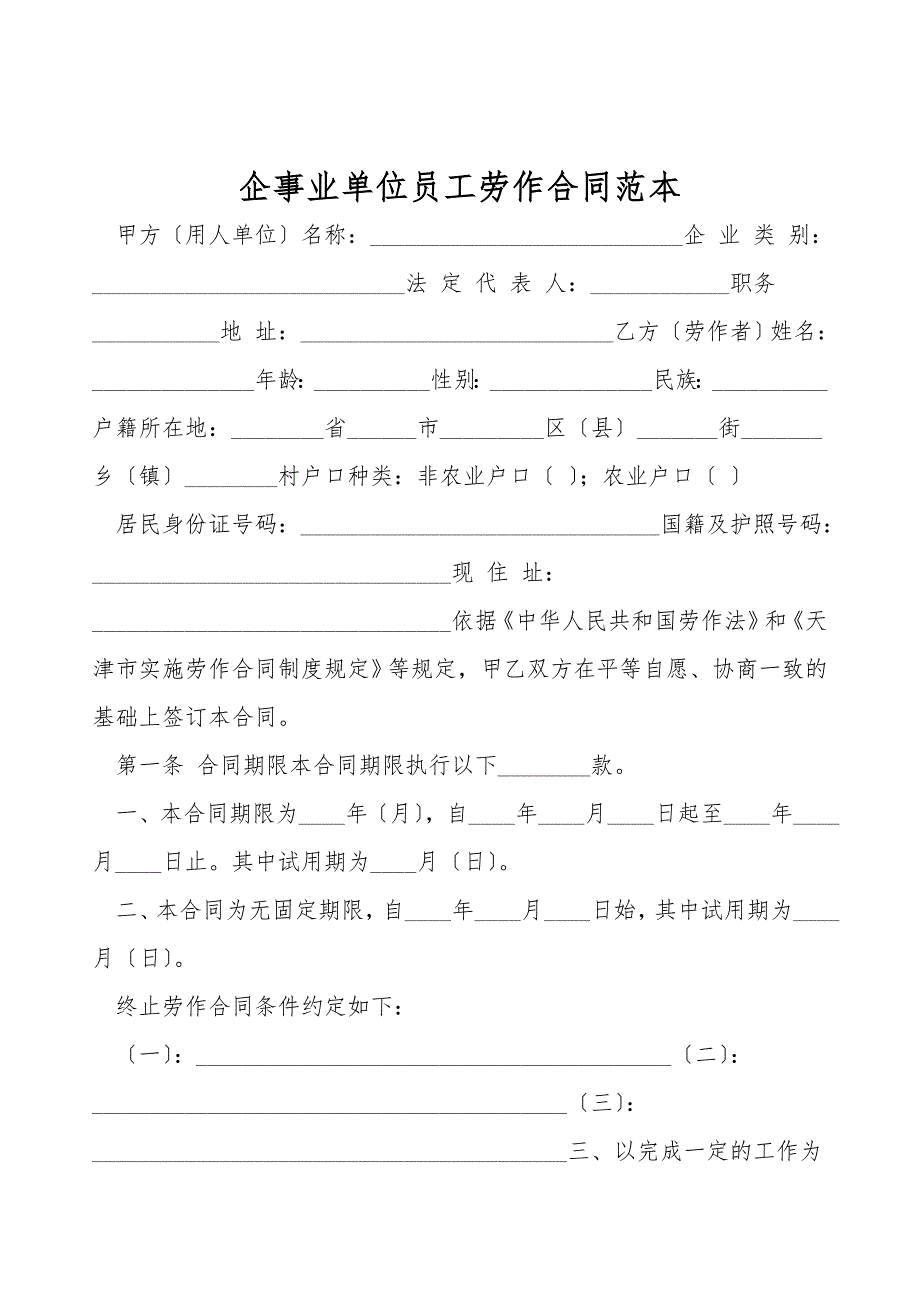 企事业单位员工劳作合同范本
甲方〔用人单位〕名称：___________________________企 业 类 别：
___________________________法 定 代 表 人：____________职务
___________地 址：___________________________乙方〔劳作者〕姓名：
______________年龄：__________性别：______________民族：__________
户籍所在地：________省______市_________区〔县〕_______街_______
乡〔镇〕________村户口种类：非农业户口〔 〕；农业户口〔 〕
居民身份证号码：_______________________________国籍及护照号码：
_______________________________现 住 址：
_______________________________依据《中华人民共和国劳作法》和《天
津市实施劳作合同制度规定》等规定，甲乙双方在平等自愿、协商一致的
基础上签订本合同。
第一条 合同期限本合同期限执行以下________款。
一、本合同期限为____年〔月〕，自____年____月____日起至____年____
月____日止。其中试用期为____月〔日〕。
二、本合同为无固定期限，自____年____月____日始，其中试用期为____
月〔日〕。
终止劳作合同条件约定如下：
〔一〕：_________________________________________〔二〕：
_________________________________________〔三〕：
_________________________________________三、以完成一定的工作为